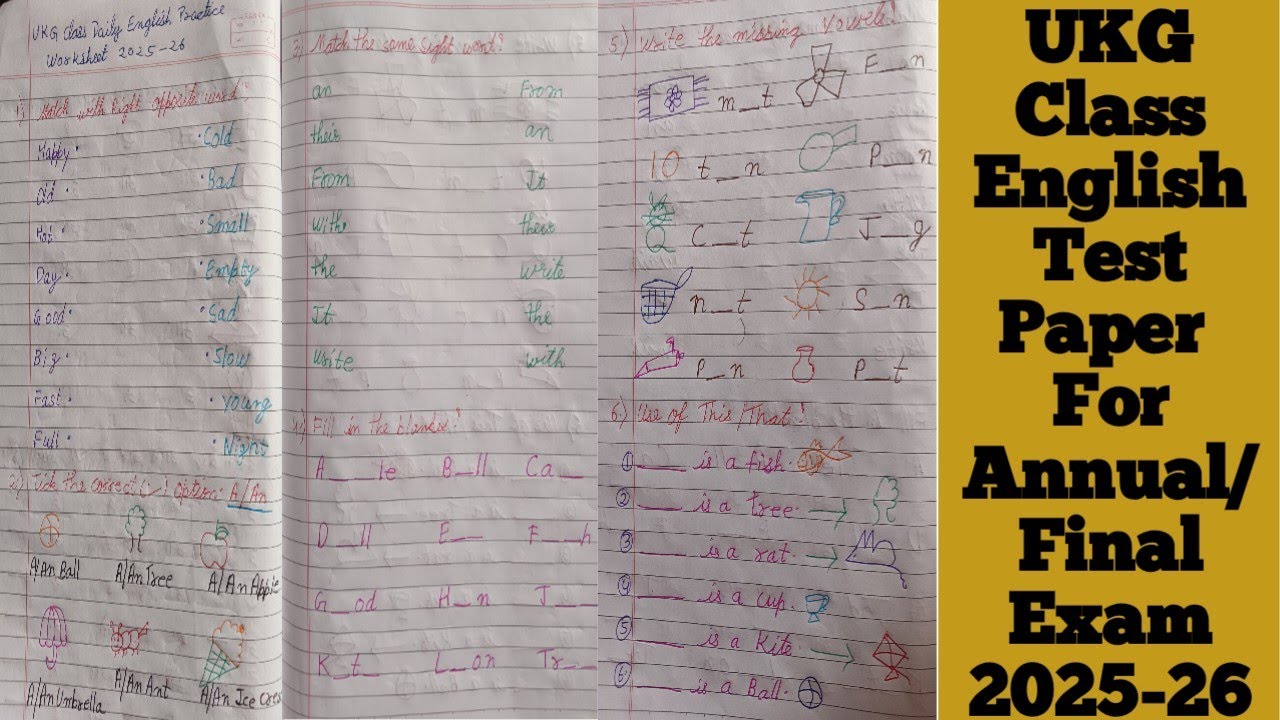 UKG Class Daily English Practice
Worksheet 2025-26
1) Match with Right opposite word
Happy • • Cold
Old • • Bad
Hot • • Small
Day • • Empty
Good • • Sad
Big • • Slow
Fast • • Young
Full • • Night
2) Tick the correct (✓) option: A/An
A/An Ball A/An Tree A/An Apple
A/An Umbrella A/An Ant A/An Ice Crea
3) Match the same Sight word?
an From
their an
From It
with their
the write
It the
write with
4) Fill in the blanks!
A__le B_ll Ca_
D_ll E__ F__h
G_od H_n J__
K_t_ L_on Tr__
5) Write the missing Vowels!
m_t F_n
10 t_n P_n
C_t J_g
n_t S_n
P_n P_t
6) Use of This/That!
① ___ is a fish.
② ___ is a tree. →
③ ___ is a rat. →
④ ___ is a cup.
⑤ ___ is a kite. →
⑥ ___ is a Ball.
UKG
Class
English
Test
Paper
For
Annual/
Final
Exam
2025-26